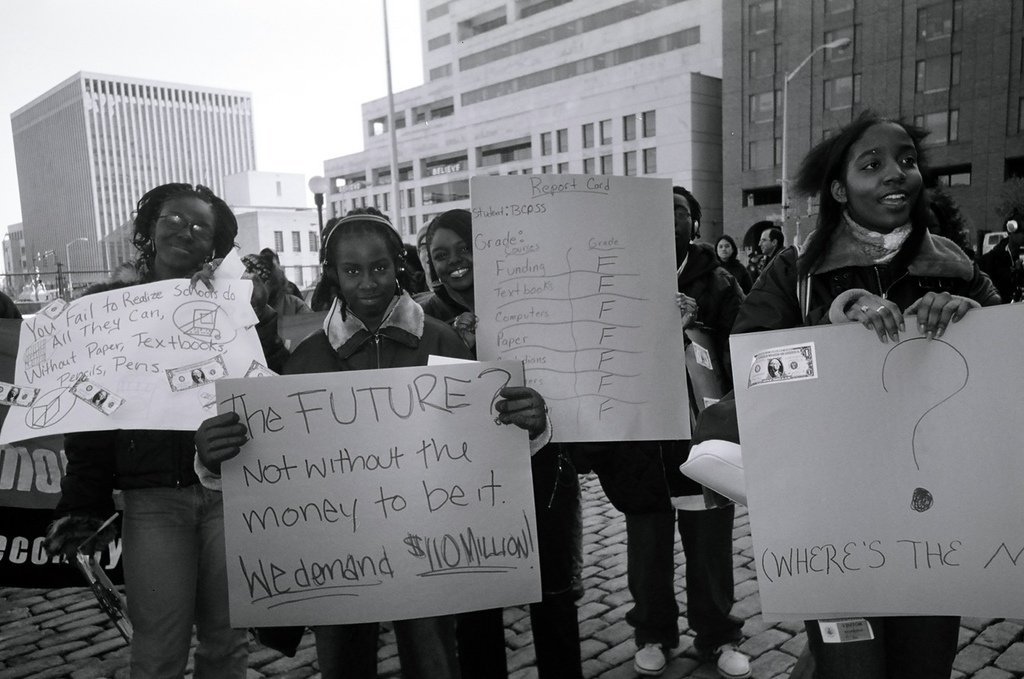 BELIEVE
Report Card
Student: BCPSS
Grade:
Courses Grade
Funding F
Textbooks F
Computers F
Paper F
F
F
F
You Fail to Realize Schools do
All They Can,
Without Paper, Textbooks,
Pencils, Pens
The FUTURE?
Not without the
money to be it.
We demand $110 MILLION!
?
(WHERE'S THE